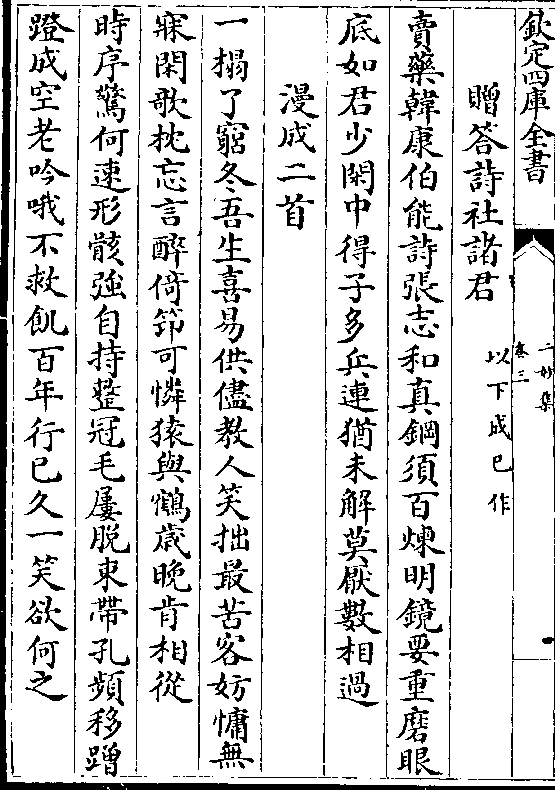 欽定四庫全書
二妙集
卷三
贈答詩社諸君 以下成已作
賣藥韓康伯能詩張志和真鋼須百煉明鏡要重磨眼
底如君少閑中得子多兵連猶未解莫厭數相過
漫成二首
一榻了窮冬吾生喜易供儘教人笑拙最苦客妨慵無
寐閑歌枕忘言醉倚笻可憐猿與鶴歲晚肯相從
時序驚何速形骸強自持整冠毛屢脫束帶孔頻移蹭
蹬成空老吟哦不救飢百年行已久一笑欲何之